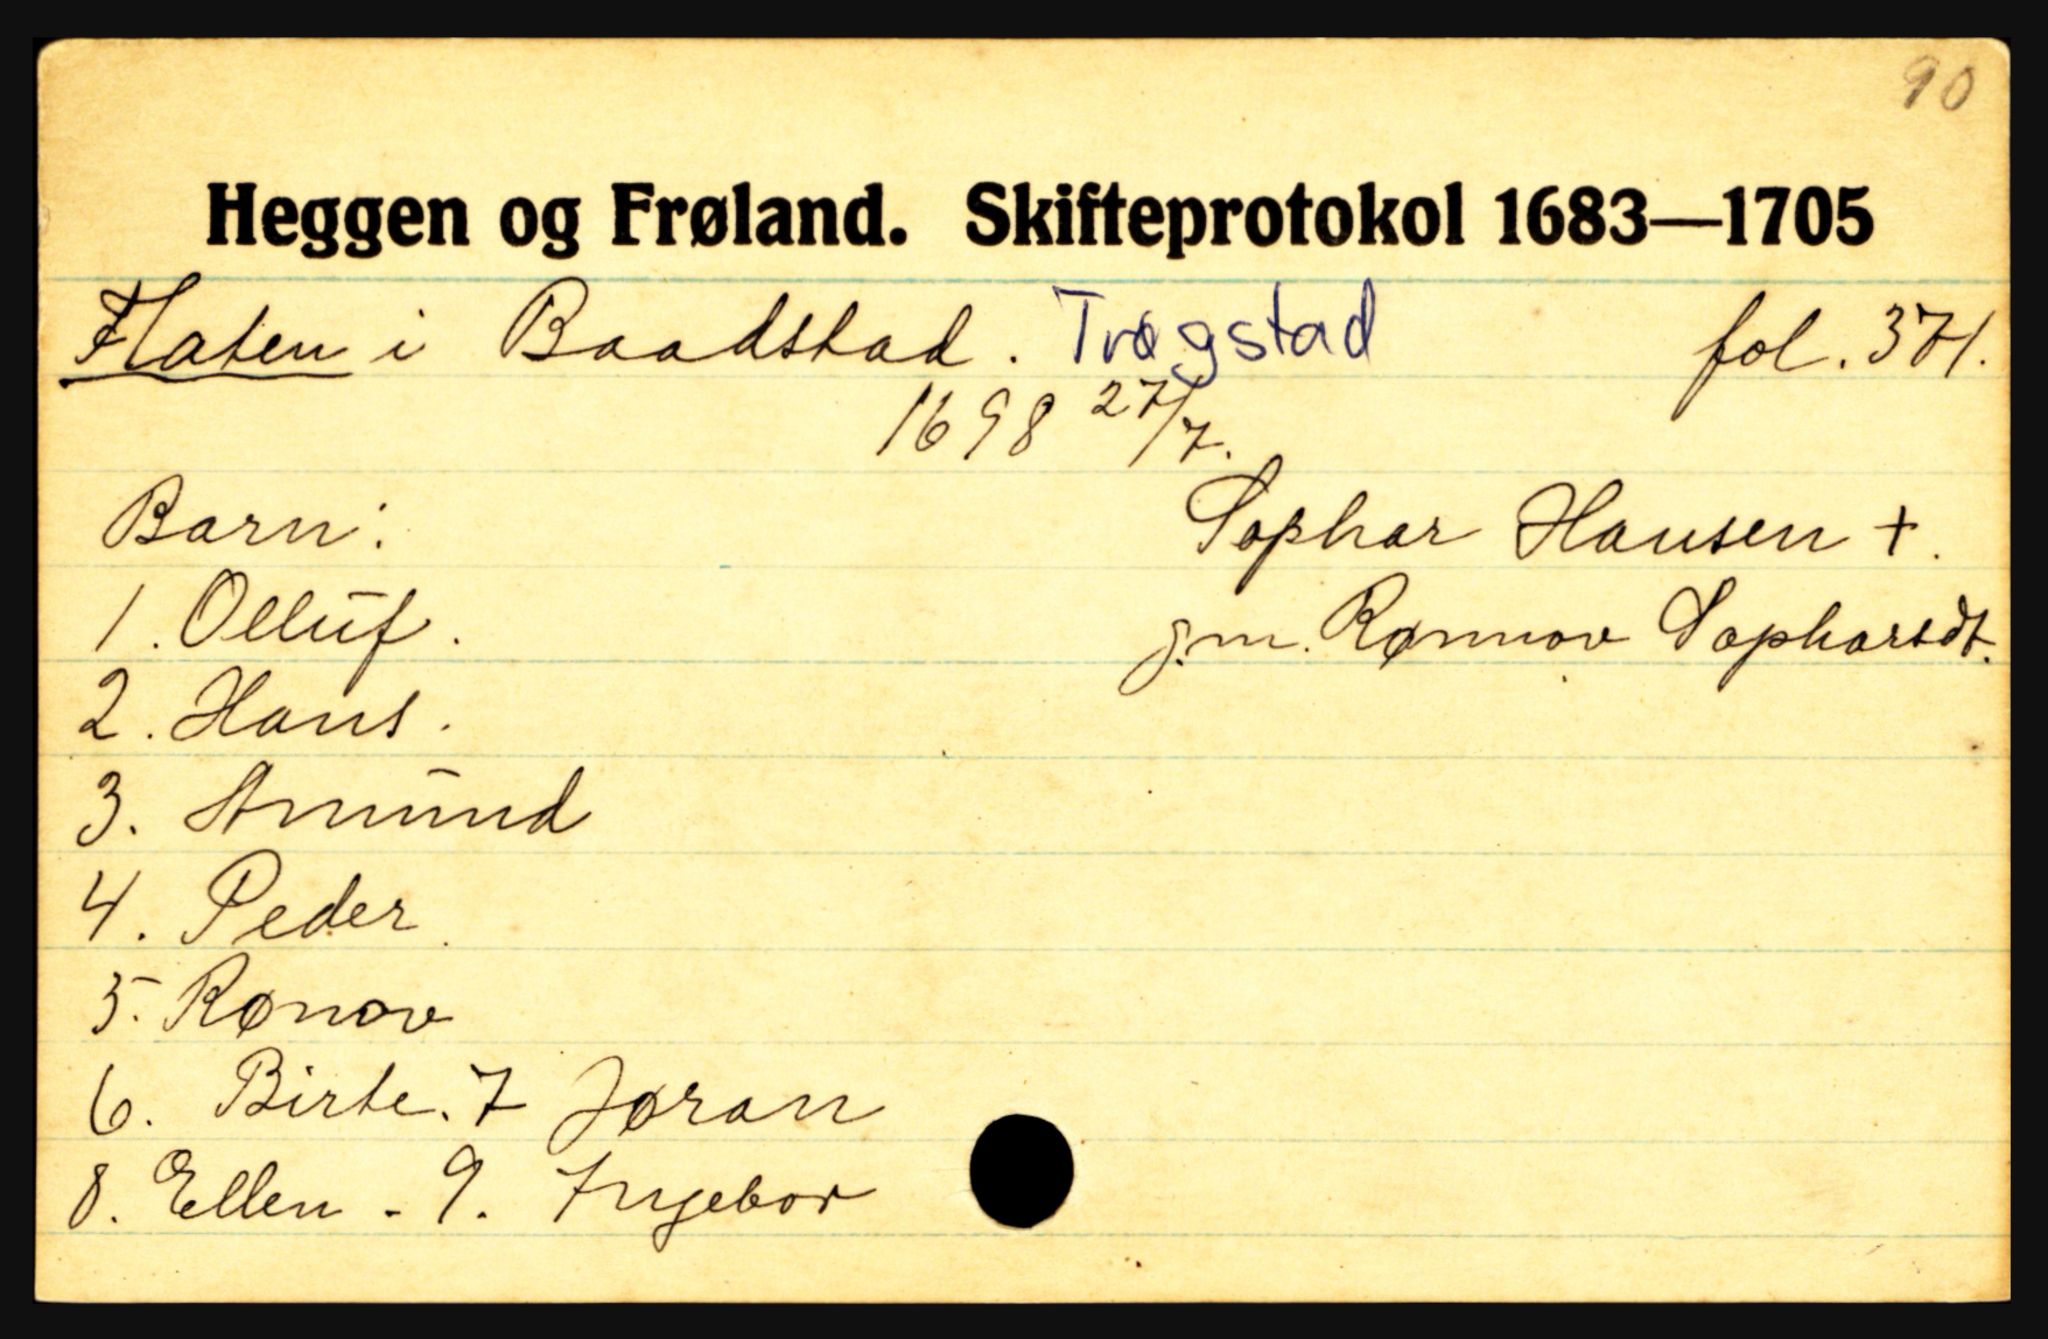 90
Heggen og Frøland. Skifteprotokol 1683—1705
Flaten i Baadstad. Trøgstad fol. 371.
1698 27/7.
Barn: Sophar Hansen +.
1. Olluf. g.m. Rønnov Sopharsdt.
2. Hans.
3. Amund
4. Peder
5. Rønov
6. Birte. 7 Jøran
8. Ellen - 9. Ingebor